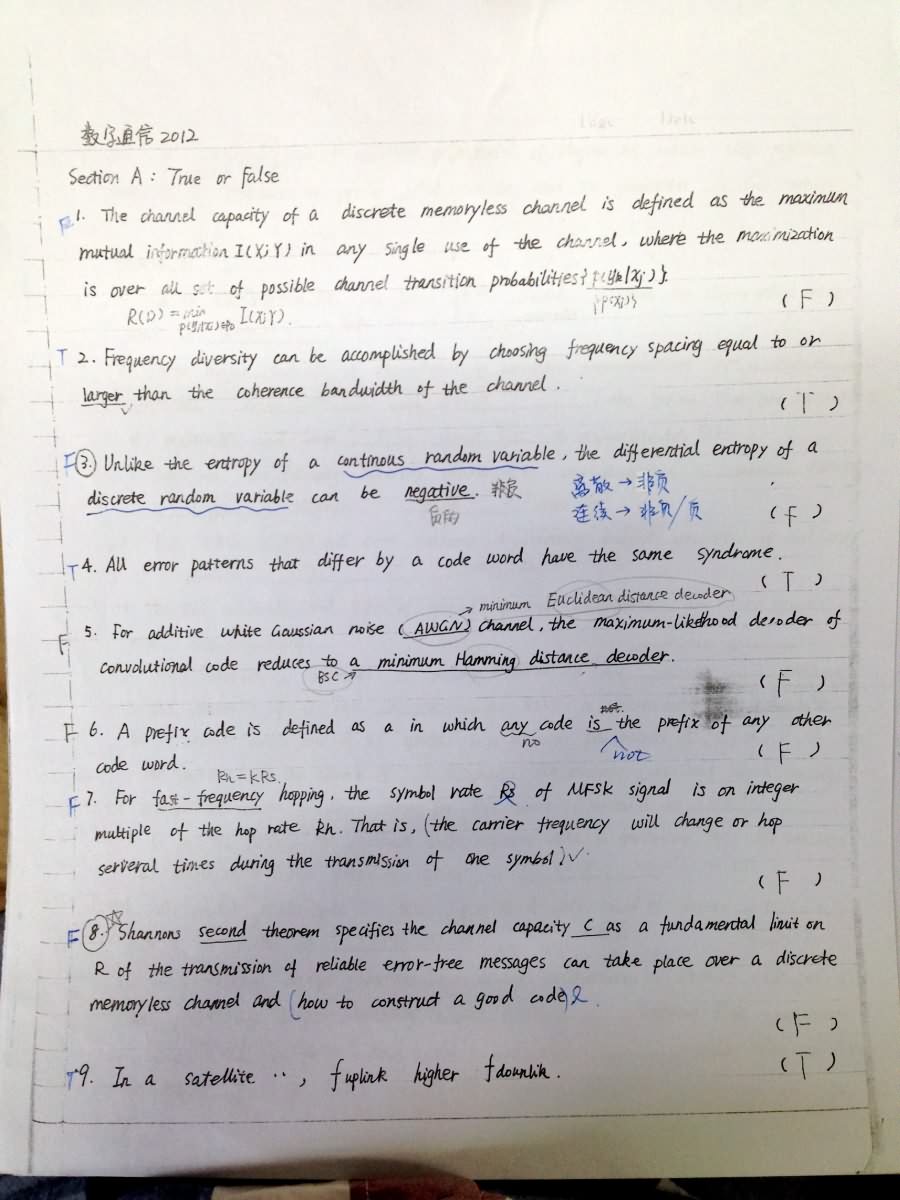 数字通信 2012
Section A : True or False
F 1. The channel capacity of a discrete memoryless channel is defined as the maximum
mutual information I(X;Y) in any single use of the channel, where the maximization
is over all set of possible channel transition probabilities {p(yk|xj)}.
{p(xj)}
( F )
R(D) = min I(X;Y).
T 2. Frequency diversity can be accomplished by choosing frequency spacing equal to or
larger than the coherence bandwidth of the channel.
( T )
F 3. Unlike the entropy of a continous random variable, the differential entropy of a
discrete random variable can be negative. 非负
负的
离散 → 非负
连续 → 非负/负
( F )
T 4. All error patterns that differ by a code word have the same syndrome.
( T )
→ minimum Euclidean distance decoder
F 5. For additive white Gaussian noise (AWGN) channel, the maximum-likelihood decoder of
convolutional code reduces to a minimum Hamming distance decoder.
BSC
( F )
F 6. A prefix code is defined as a in which any code is the prefix of any other
no
not
code word.
( F )
Rh=kRs.
F 7. For fast-frequency hopping, the symbol rate Rs of MFSK signal is an integer
multiple of the hop rate Rh. That is, (the carrier frequency will change or hop
serveral times during the transmission of one symbol) ✓.
( F )
F 8. Shannons second theorem specifies the channel capacity C as a fundamental limit on
R of the transmission of reliable error-free messages can take place over a discrete
memoryless channel and (how to construct a good code)
( F )
T 9. In a satellite ··, fuplink higher fdownlik.
( T )